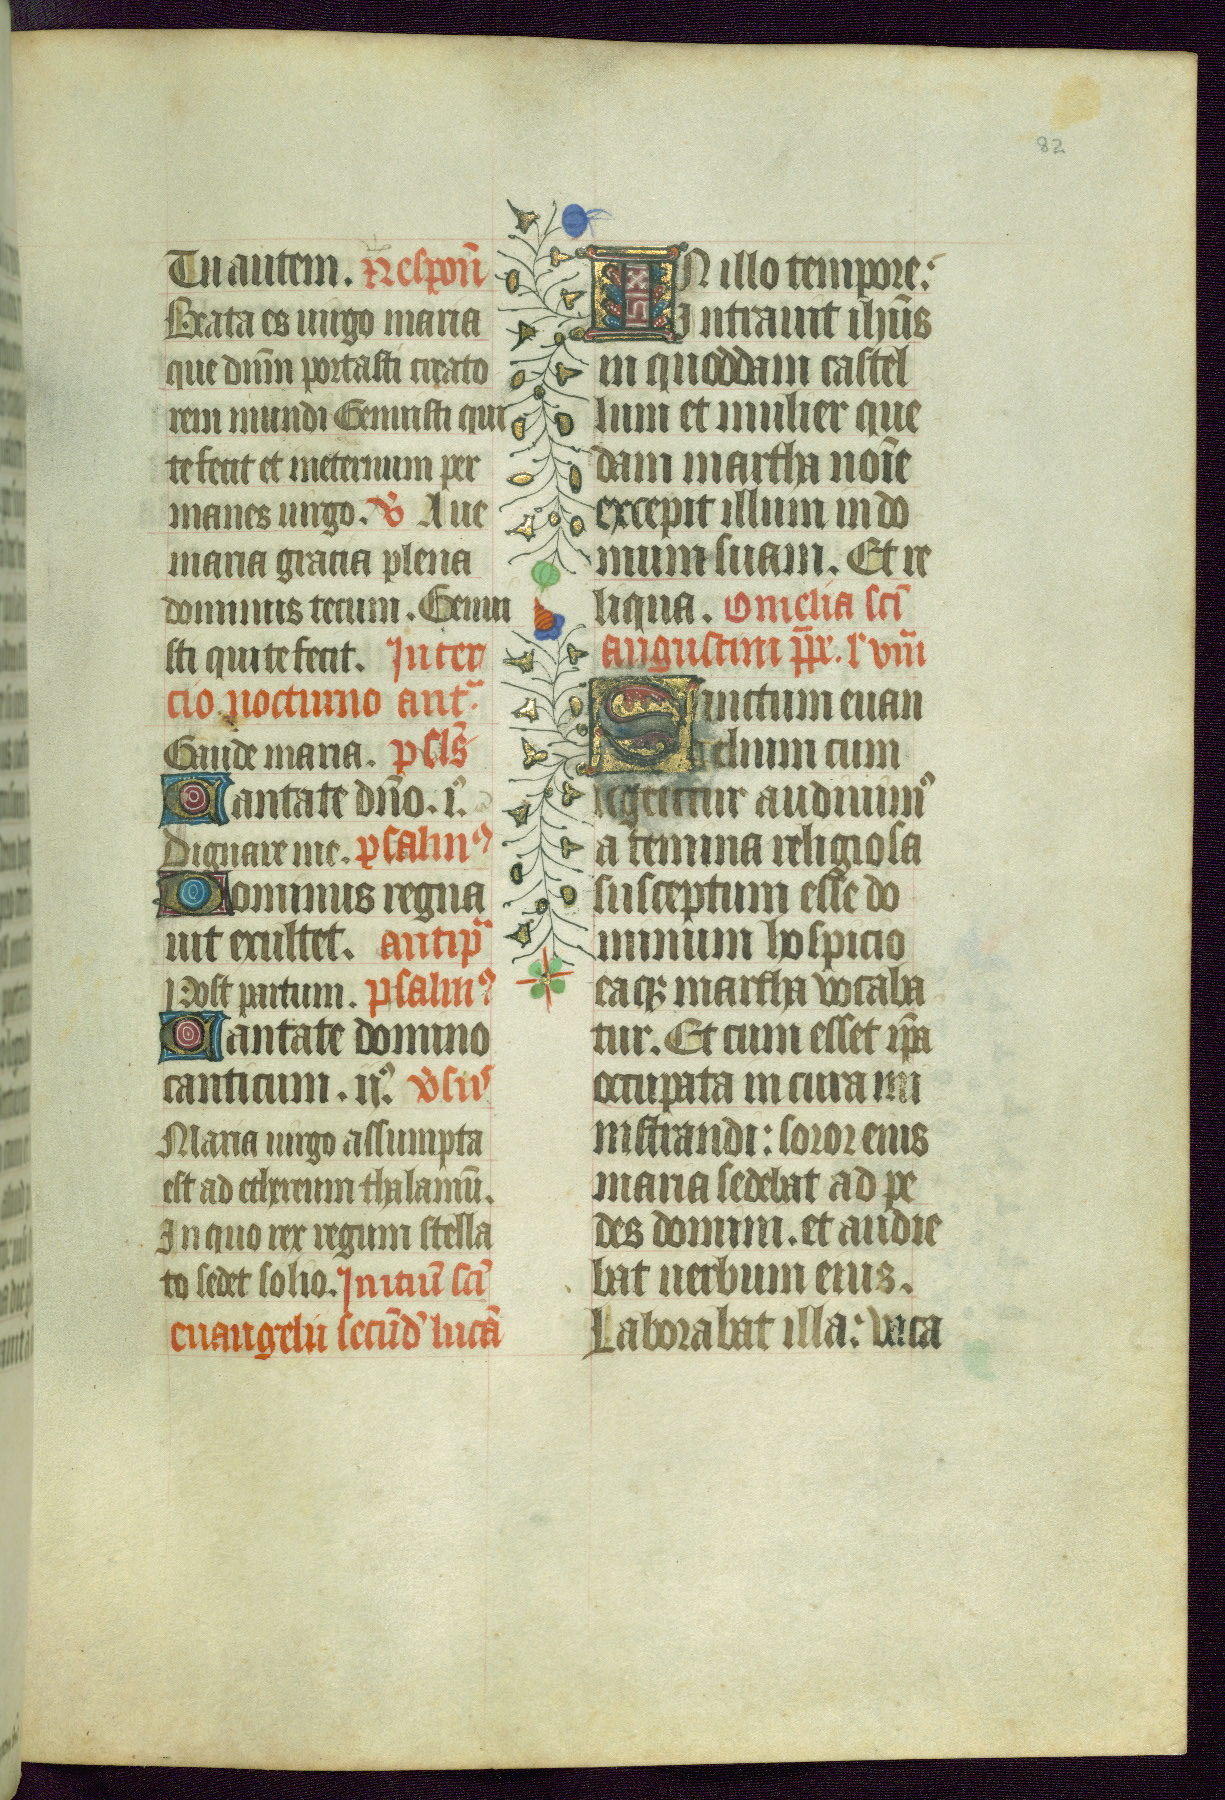 82
Tu autem. Respoñ
Beata es uirgo maria
que dnm̄ portasti creato
rem mundi Genuisti qui
te fecit et ineternum per
manes uirgo. V̄ Aue
maria gracia plena
dominus tecum. Genui
sti qui te fecit. In ter
cio nocturno ant.
Gaude maria. ps̄ls
Cantate dño. i.
Dignare me. psalmꝰ
Dominus regna
uit exultet. antip̄
Post partum. psalmꝰ
Cantate domino
canticum. ii. v̄sus
Maria uirgo assumpta
est ad ethereum thalamū.
In quo rex regum stella
to sedet solio. Iniciū sc̄i
euangelii secūd' lucā
IN illo tempore:
Intrauit ihūs
in quoddam castel
lum et mulier que
dam martha noīe
excepit illum in do
mum suam. Et re
liqua. Omelia sc̄i
augustini p̄pe. l' viii
Sanctum euan
gelium cum
legeretur audiuimꝰ
a femina religiosa
susceptum esse do
minum hospicio
eaqꝫ martha vocaba
tur. Et cum esset ip̄a
occupata in cura mi
nistrandi: soror eius
maria sedebat ad pe
des domini. et audie
bat uerbum eius.
Laborabat illa: vaca